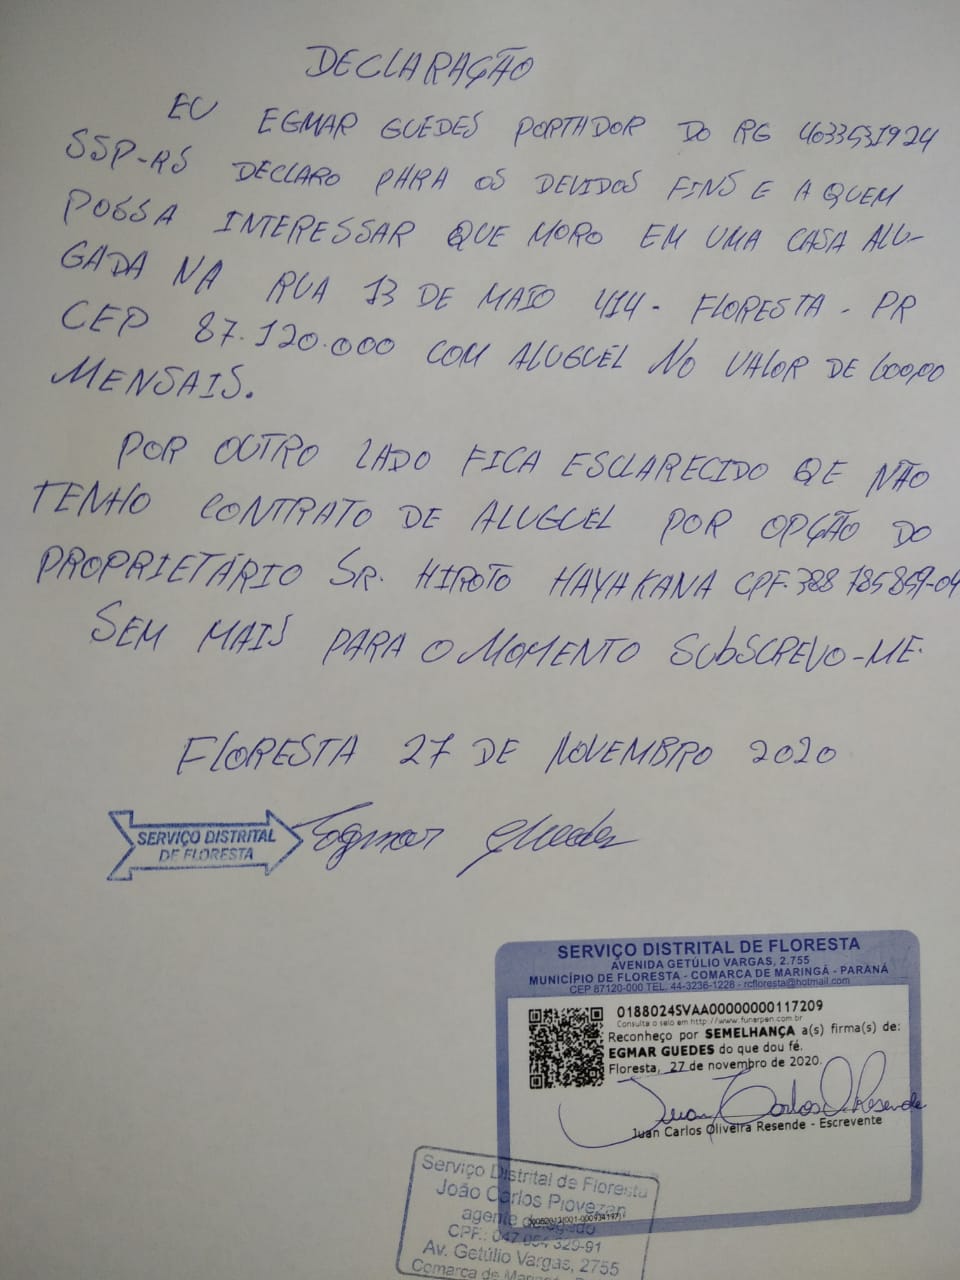 DECLARAÇÃO
EU EGMAR GUEDES PORTADOR DO RG 4033531924
SSP-RS DECLARO PARA OS DEVIDOS FINS E A QUEM
POSSA INTERESSAR QUE MORO EM UMA CASA ALU-
GADA NA RUA 13 DE MAIO 414 - FLORESTA - PR
CEP 87.120.000 COM ALUGUEL NO VALOR DE 600,00
MENSAIS.
POR OUTRO LADO FICA ESCLARECIDO QUE NÃO
TENHO CONTRATO DE ALUGUEL POR OPÇÃO DO
PROPRIETÁRIO SR. HIROTO HAYAKANA CPF. 388 785859-04
SEM MAIS PARA O MOMENTO SUBSCREVO-ME.
FLORESTA 27 DE NOVEMBRO 2020
SERVIÇO DISTRITAL
DE FLORESTA
Egmar Guedes
SERVIÇO DISTRITAL DE FLORESTA
AVENIDA GETÚLIO VARGAS, 2.755
MUNICÍPIO DE FLORESTA - COMARCA DE MARINGÁ - PARANÁ
CEP 87120-000 TEL. 44-3236-1228 - rcfloresta@hotmail.com
0188024SVAA00000000117209
Consulta o selo em http://www.funarpen.com.br
Reconheço por SEMELHANÇA a(s) firma(s) de:
EGMAR GUEDES do que dou fé.
Floresta, 27 de novembro de 2020.
Juan Carlos O. Resende
Juan Carlos Oliveira Resende - Escrevente
Serviço Distrital de Floresta
João Carlos Piovezan
agente delegado
CPF.: 329-91
Av. Getúlio Vargas, 2755
Comarca de